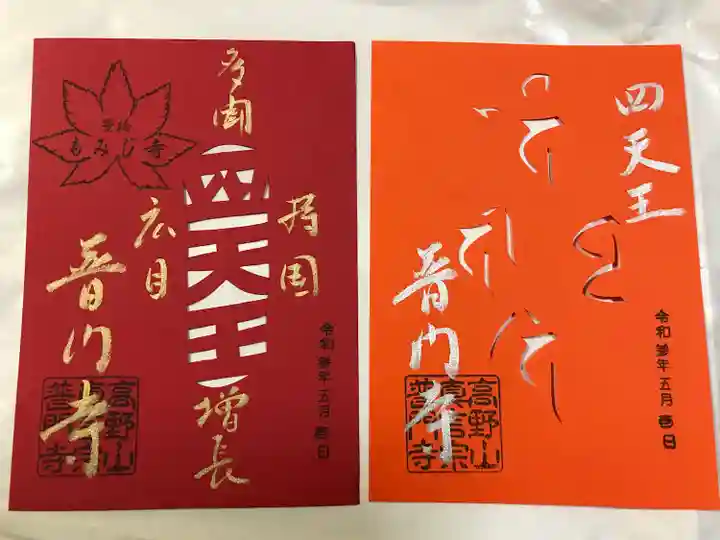 もみじ寺
多聞
四天王
持国
広目
増長
普門寺
令和参年五月吉日
高野山
真言宗
普門寺
四天王
普門寺
令和参年五月吉日
高野山
真言宗
普門寺